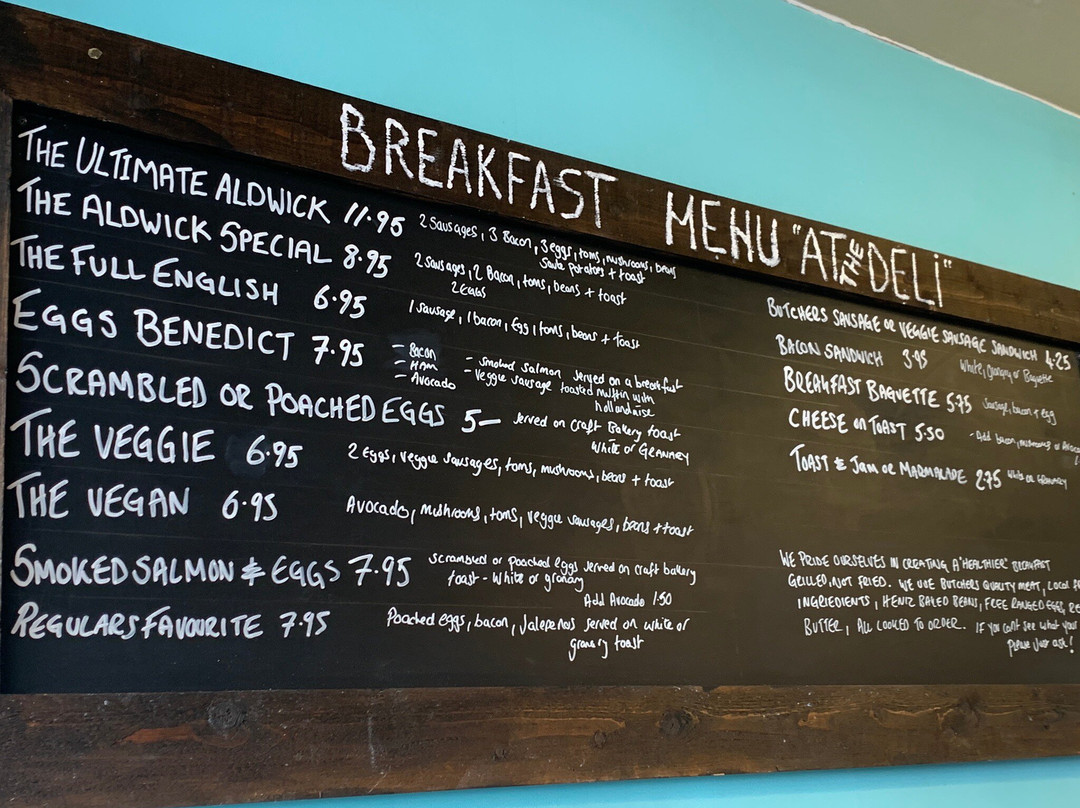 BREAKFAST MENU "AT THE DELi"
THE ULTIMATE ALDWICK 11.95 2 Sausages, 3 Bacon, 3 eggs, toms, mushrooms, beans
Saute Potatoes + toast
THE ALDWICK SPECIAL 8.95 2 Sausages, 2 Bacon, toms, beans + toast
2 EGGS
THE FULL ENGLISH 6.95 1 Sausage, 1 bacon, Egg, toms, beans + toast
EGGS BENEDICT 7.95 - Bacon
- HAM
- Avocado
- smoked salmon served on a breakfast
- Veggie sausage toasted muffin with
hollandaise
SCRAMBLED OR POACHED EGGS 5- served on Craft Bakery toast
WHITE OR GRANARY
THE VEGGIE 6.95 2 eggs, veggie sausages, toms, mushrooms, beans + toast
THE VEGAN 6.95 Avocado, mushrooms, toms, veggie sausages, beans + toast
SMOKED SALMON & EGGS 7.95 scrambled or poached eggs served on craft bakery
toast - white or granary
Add Avocado 1.50
REGULARS FAVOURITE 7.95 Poached eggs, bacon, Jalepenos served on white or
granary toast
BUTCHERS SAUSAGE OR VEGGIE SAUSAGE SANDWICH 4.25
BACON SANDWICH 3.95 White, Granary or Baguette
BREAKFAST BAGUETTE 5.75 Sausage, bacon + egg
CHEESE ON TOAST 5.50 - Add bacon, mushrooms or
TOAST & JAM OR MARMALADE 2.75 White or GRANARY
WE PRIDE OURSELVES IN CREATING A "HEALTHIER" BREAKFAST
GRILLED, NOT FRIED. WE USE BUTCHERS QUALITY MEAT, LOCAL
INGREDIENTS, HEINZ BAKED BEANS, FREE RANGED EGGS,
BUTTER, ALL COOKED TO ORDER. IF YOU CANT SEE WHAT YOUR
PLEASE JUST ASK!